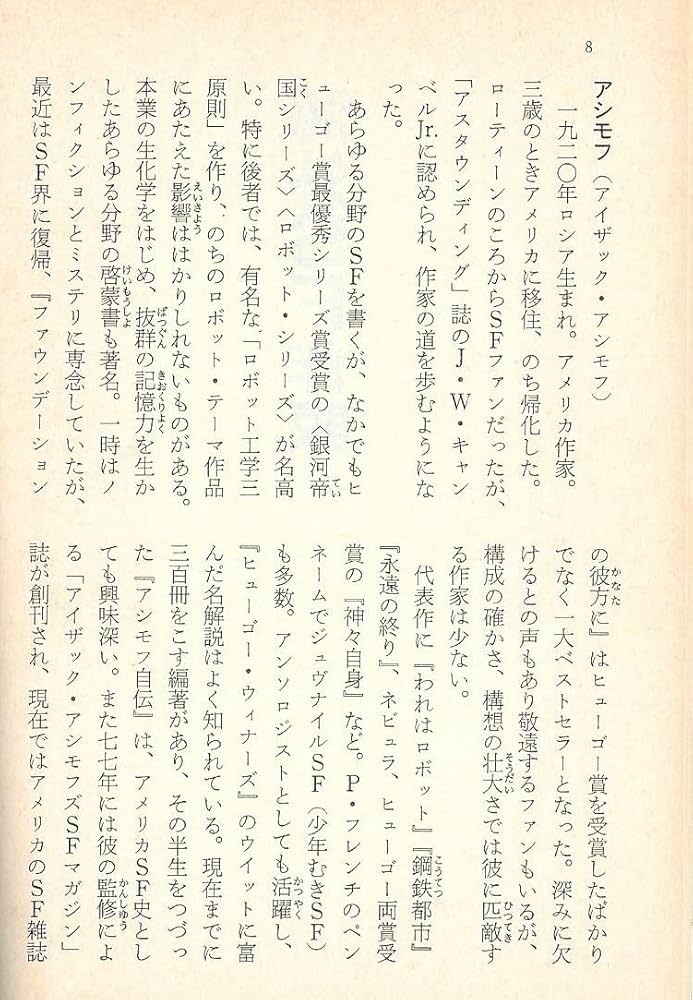 8
アシモフ（アイザック・アシモフ）
一九二〇年ロシア生まれ。アメリカ作家。
三歳のときアメリカに移住、のち帰化した。
ローティーンのころからSFファンだったが、
「アスタウンディング」誌のJ・W・キャン
ベルJr.に認められ、作家の道を歩むようにな
った。
あらゆる分野のSFを書くが、なかでもヒ
ューゴー賞最優秀シリーズ賞受賞の〈銀河帝
国シリーズ〉〈ロボット・シリーズ〉が名高
い。特に後者では、有名な「ロボット工学三
原則」を作り、のちのロボット・テーマ作品
にあたえた影響ははかりしれないものがある。
本業の生化学をはじめ、抜群の記憶力を生か
したあらゆる分野の啓蒙書も著名。一時はノ
ンフィクションとミステリに専念していたが、
最近はSF界に復帰、『ファウンデーション
の彼方に』はヒューゴー賞を受賞したばかり
でなく一大ベストセラーとなった。深みに欠
けるとの声もあり敬遠するファンもいるが、
構成の確かさ、構想の壮大さでは彼に匹敵す
る作家は少ない。
代表作に『われはロボット』『鋼鉄都市』
『永遠の終り』、ネビュラ、ヒューゴー両賞受
賞の『神々自身』など。P・フレンチのペン
ネームでジュヴナイルSF（少年むきSF）
も多数。アンソロジストとしても活躍し、
『ヒューゴー・ウィナーズ』のウイットに富
んだ名解説はよく知られている。現在までに
三百冊をこす編著があり、その半生をつづっ
た『アシモフ自伝』は、アメリカSF史とし
ても興味深い。また七七年には彼の監修によ
る「アイザック・アシモフズSFマガジン」
誌が創刊され、現在ではアメリカのSF雑誌